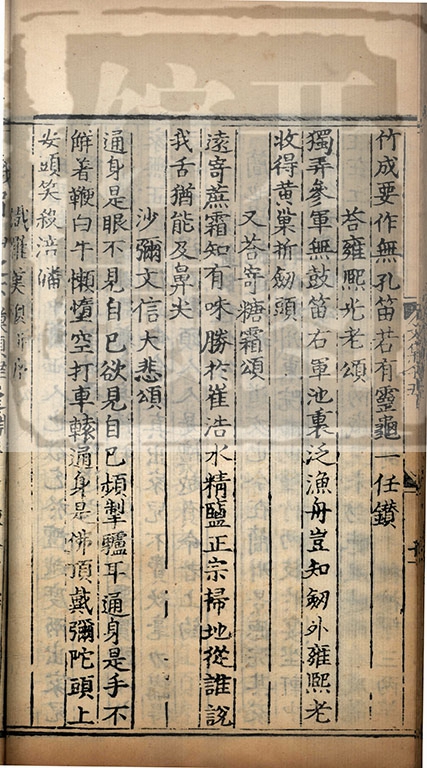 竹成要作無孔笛若有靈龜一任鑚
荅雍熙光老頌
獨弄參軍無鼓笛右軍池裏泛漁舟豈知劒外雍熙老
收得黄巢折劒頭
又荅寄糖霜頌
遠寄蔗霜知有味勝於崔浩水精鹽正宗掃地從誰說
我舌猶能及鼻尖
沙彌文信大悲頌
通身是眼不見自己欲見自己頻掣驢耳通身是手不
解著鞭白牛懶惰空打車轅通身是佛頂戴彌陀頭上
安頭笑殺涪皤
羅漢